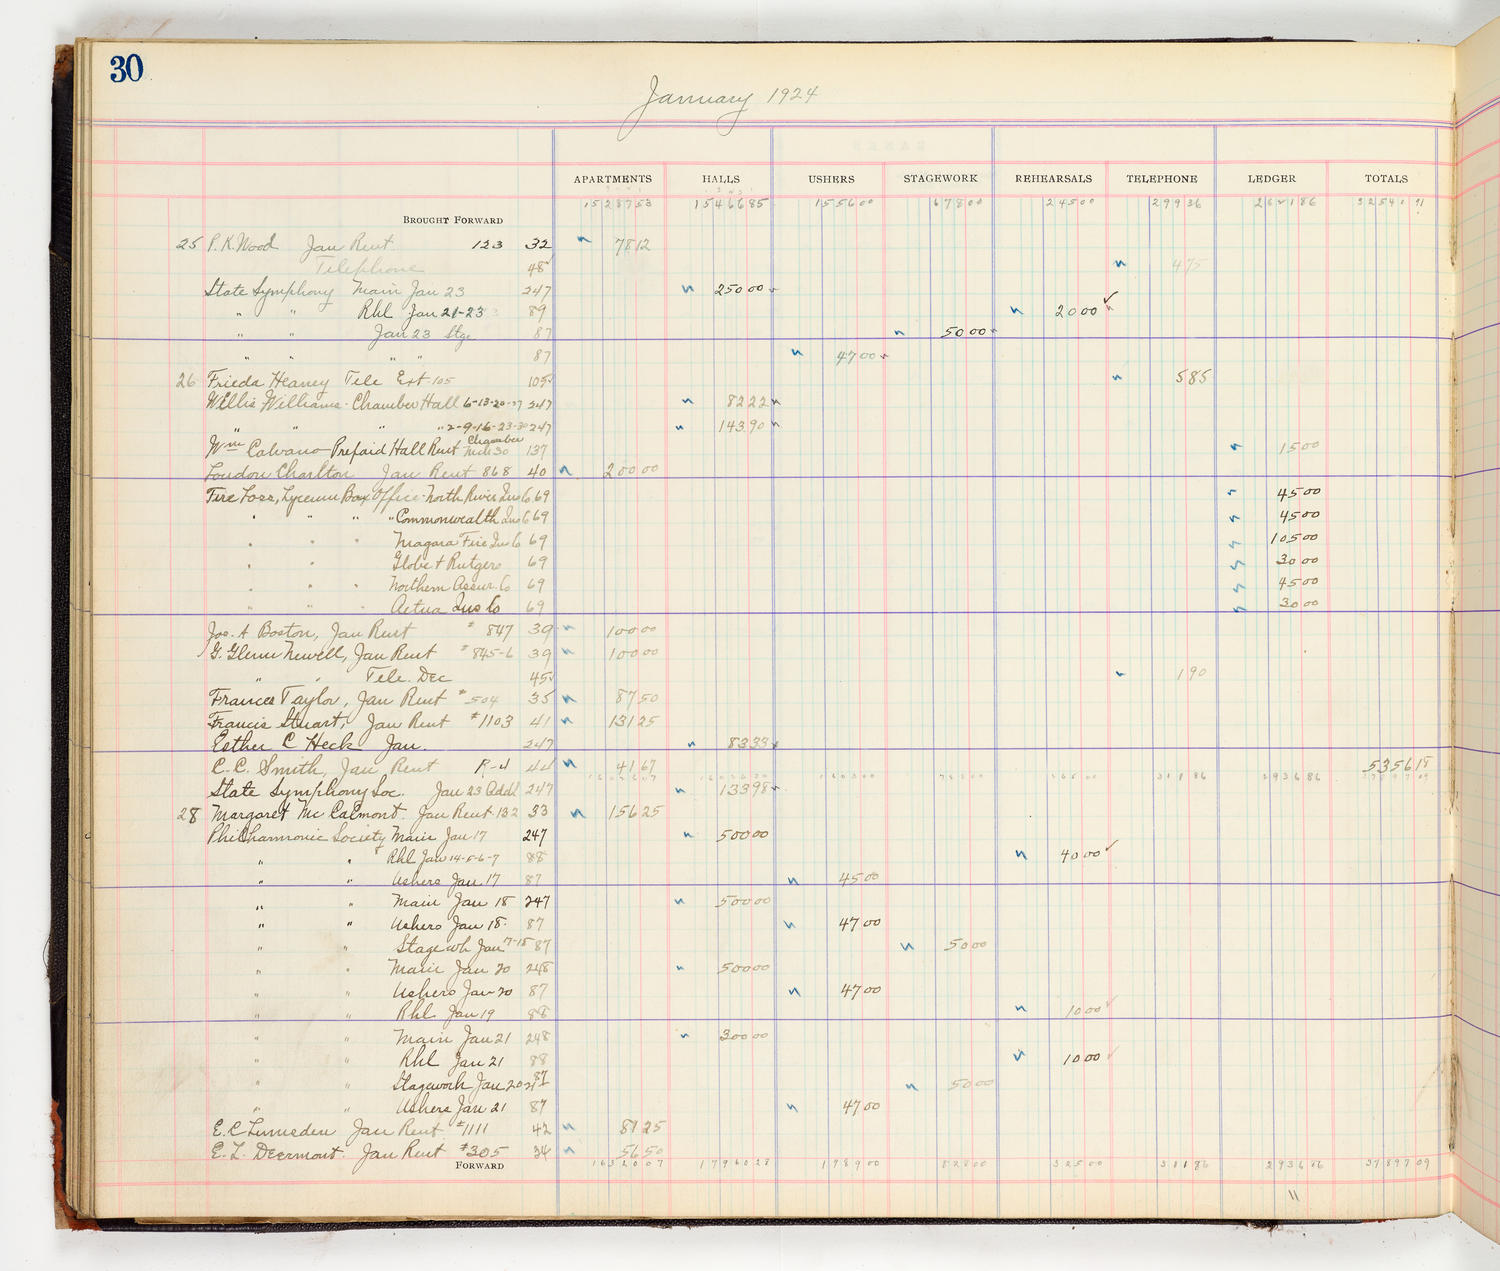 30
January 1924
APARTMENTS HALLS USHERS STAGEWORK REHEARSALS TELEPHONE LEDGER TOTALS
BROUGHT FORWARD 1528753 1546685 155600 67800 24500 29936
25 P. K. Wood Jan Rent 123 32 7812
Telephone 48 475
State Symphony Main Jan 23 247 25000
" " Rhl Jan 21-23 89 2000
" " Jan 23 Stge 87 5000
" " " " 87 4700
26 Frieda Heaney Tele Ext 105 105 585
Willis Williams - Chamber Hall 6-13-20-27 247 8222
" " " " 2-9-16-23-30 247 14390
Wm Calvano Prepaid Hall Rent Chamber 30 137 1500
Loudon Charlton Jan Rent 868 40 20000
Fire Loss, Lyceum Box Office - North River Ins Co 69 4500
" " " " Commonwealth Ins Co 69 4500
" " " Niagara Fire Ins Co 69 10500
" " " Globe & Rutgers 69 3000
" " " Northern Assur. Co 69 4500
" " " Aetna Ins Co 69 3000
Jos. A Boston, Jan Rent # 847 39 10000
G. Glenn Newell, Jan Rent # 845-6 39 10000
" " Tele. Dec 45 190
Frances Taylor, Jan Rent # 504 35 8750
Francis Stuart, Jan Rent # 1103 41 13125
Esther C Heck Jan. 247 8333
C. C. Smith, Jan Rent R-4 44 4167 535618
State Symphony Soc. Jan 23 Addl 247 13398
28 Margaret Mc Calmont. Jan Rent 132 33 15625
Philharmonic Society Main Jan 17 247 50000
" " Rhl Jan 14-5-6-7 88 4000
" " Ushers Jan 17 87 4500
" " Main Jan 18 247 50000
" " Ushers Jan 18 87 4700
" " Stagewk Jan 17-18 87 5000
" " Main Jan 20 248 50000
" " Ushers Jan 20 87 4700
" " Rhl Jan 19 88 1000
" " Main Jan 21 248 30000
" " Rhl Jan 21 88 1000
" " Stagework Jan 20-21 87 5000
" " Ushers Jan 21 87 4700
E. C Lumsden Jan Rent #1111 42 8125
E. L. Deermont. Jan Rent #305 34 5650
FORWARD 1632007 1796028 178900 82800 32500 31186 293686 3789709